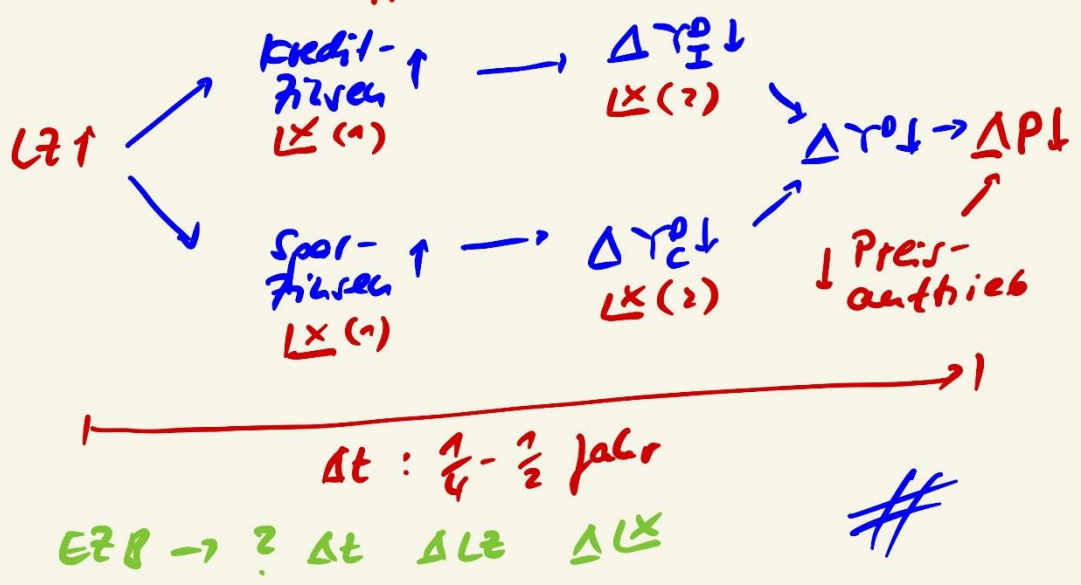 LZ↑
Kredit-
zinsen ↑ → Δ Y^D_I ↓
LX (1)
LX (2)
Δ Y^D ↓ → Δ P ↓
Spar-
zinsen ↑ → Δ Y^D_C ↓
LX (1)
LX (2)
↓ Preis-
auftrieb
Δt : 1/4 - 1/2 Jahr
EZB → ? Δt ΔLZ ΔLX